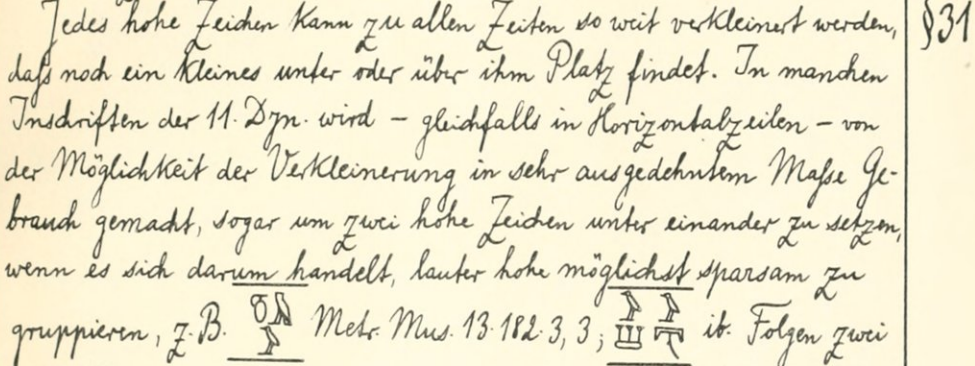 Jedes hohe Zeichen kann zu allen Zeiten so weit verkleinert werden, §31
daß noch ein kleines unter oder über ihm Platz findet. In manchen
Inschriften der 11. Dyn. wird – gleichfalls in Horizontalzeilen – von
der Möglichkeit der Verkleinerung in sehr ausgedehntem Maße Ge-
brauch gemacht, sogar um zwei hohe Zeichen unter einander zu setzen,
wenn es sich darum handelt, lauter hohe möglichst sparsam zu
gruppieren, z. B. Metr. Mus. 13.182.3, 3; ib. Folgen zwei